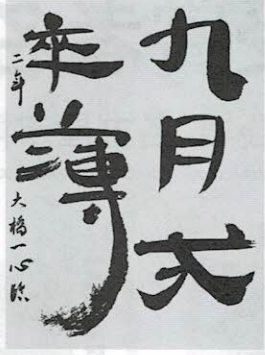 九月大
卒薄
二年 大橋一心臨